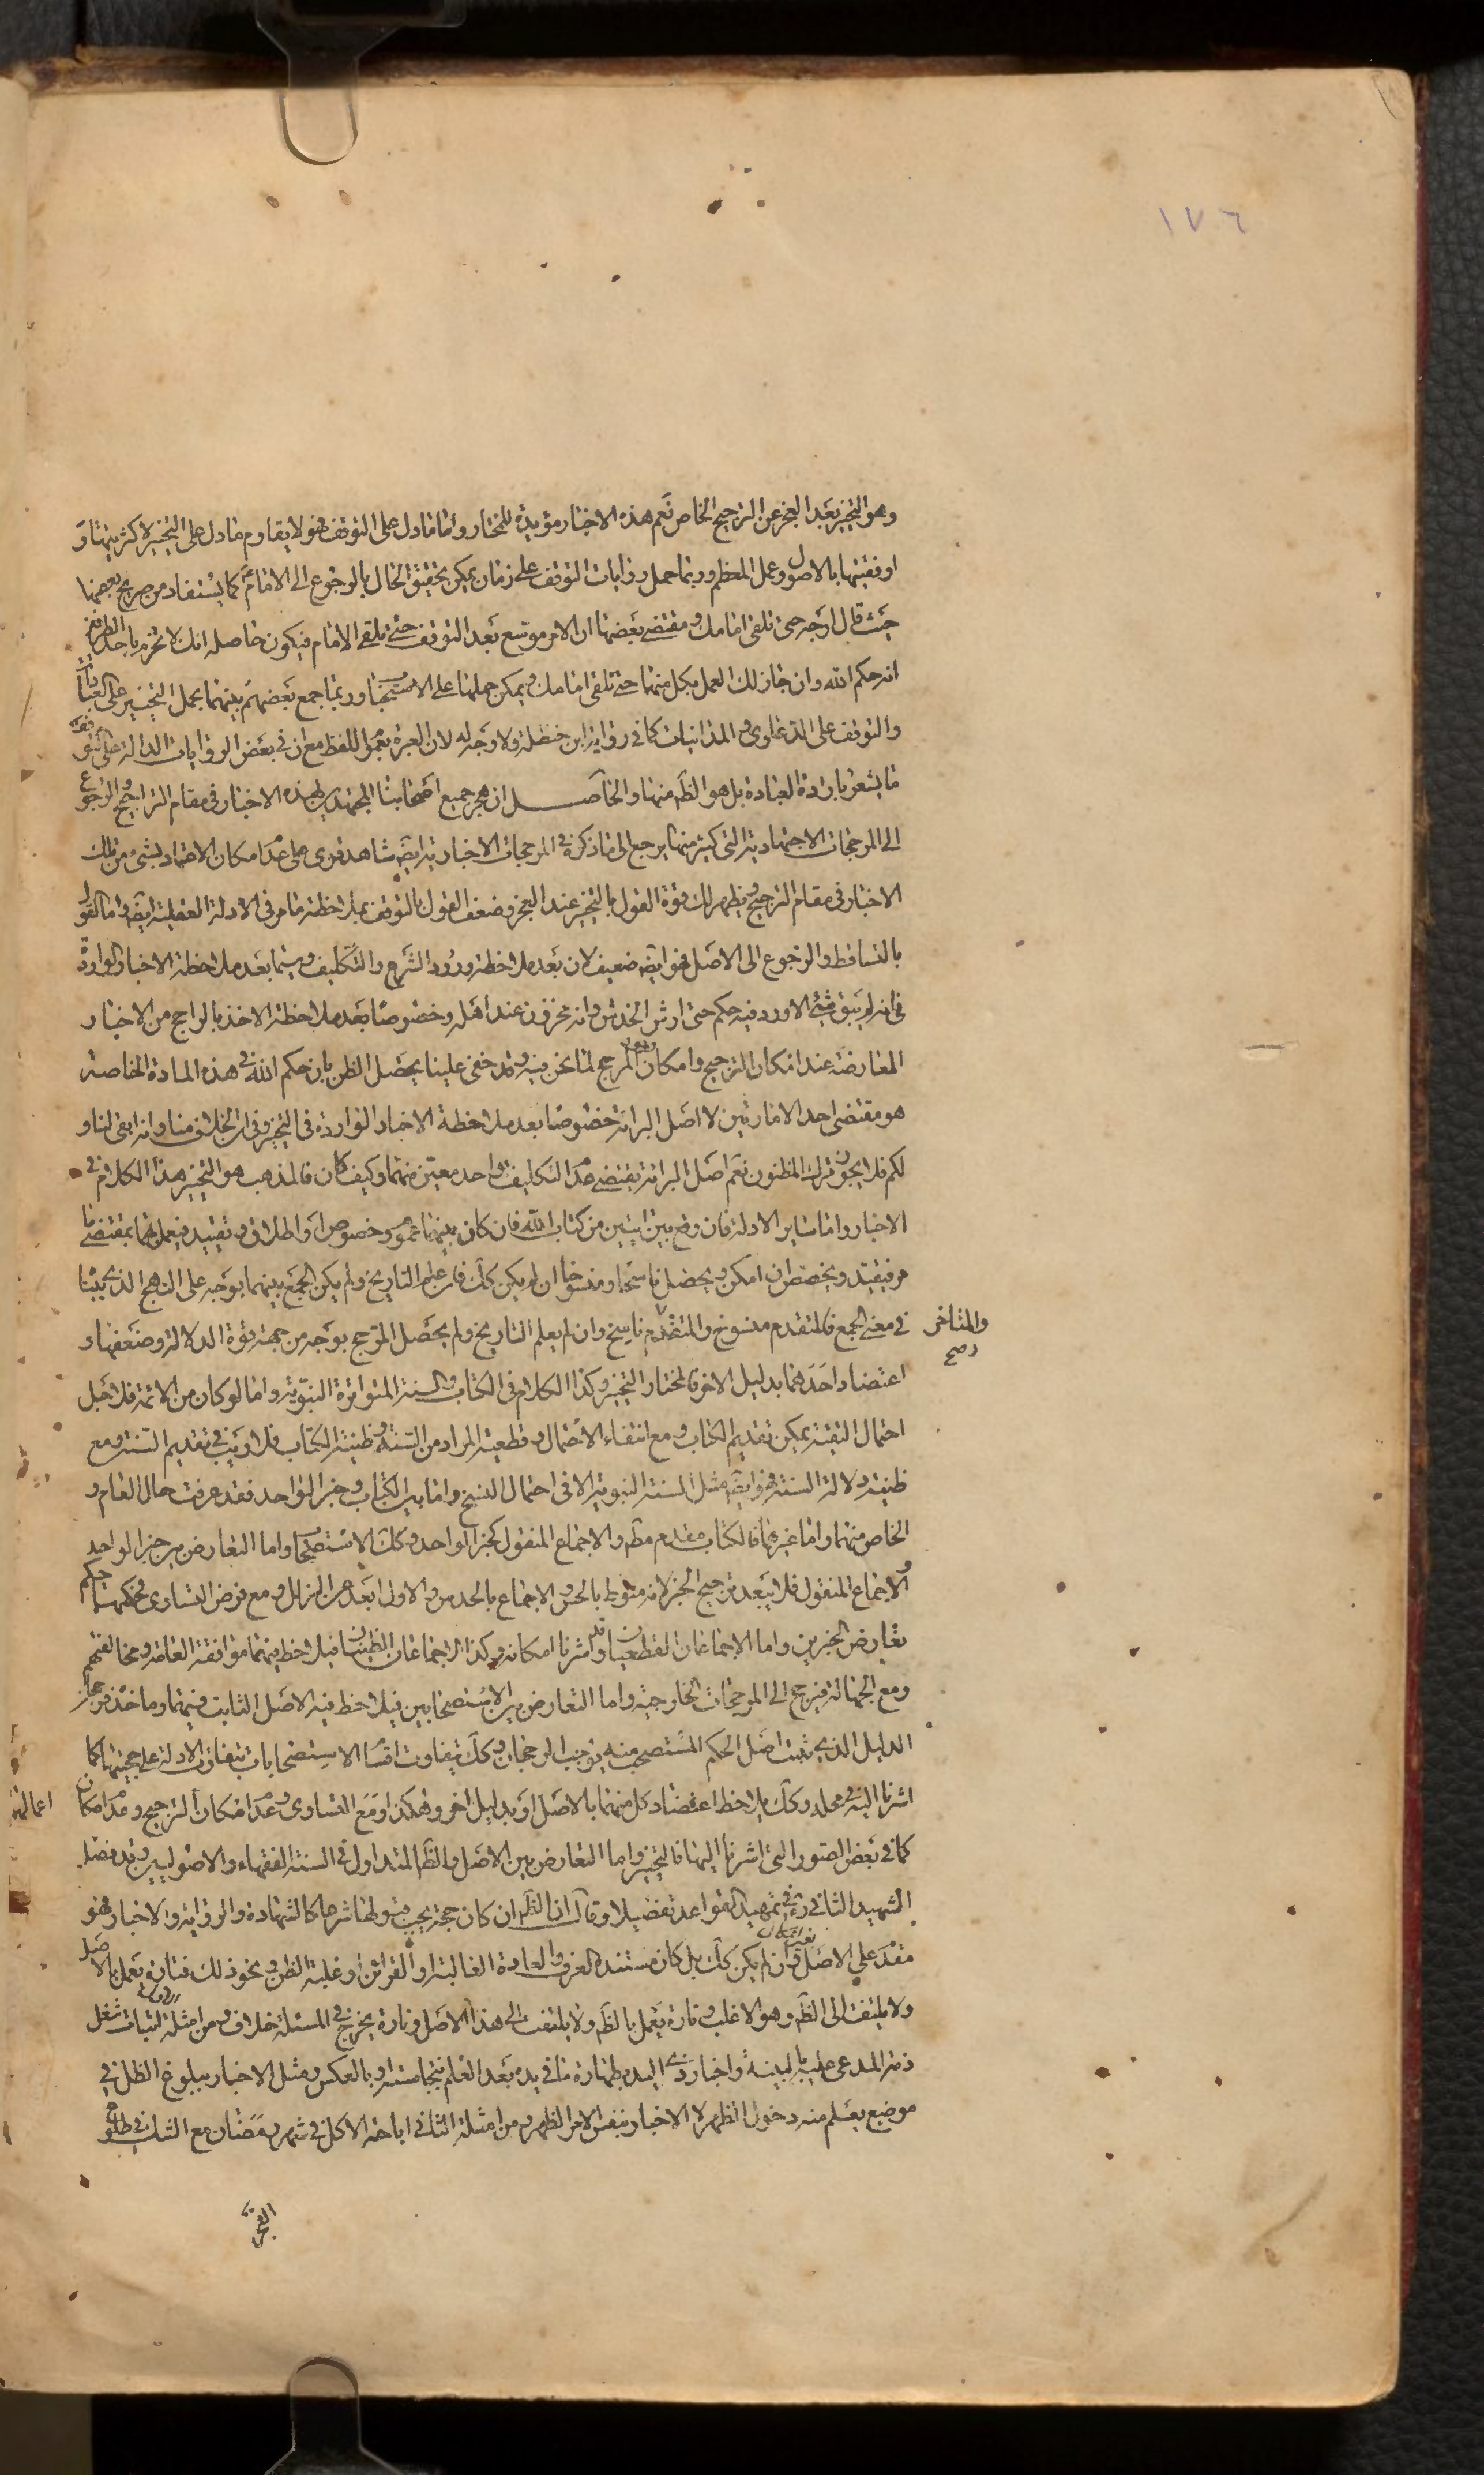 ١٧٦
وهو التخيير بعد العجز عن الترجيح الخاص نعم هذه الاخبار مؤيدة للمختار واما ما دل على التوقف فهو لا يقاوم ما دل على التخيير لاكثريتها و
اوفقيتها بالاصول وعمل المعظم وربما حمل روايات التوقف على زمان يمكن تحقيق الحال بالرجوع الى الامام ع كما يستفاد من صريح بعضها
حيث قال ارجه حتى تلقى امامك ومقتضى بعضها ان الامر موسع بعد التوقف حتى تلقى الامام فيكون حاصله انك لا تجزم باحد الطرفين
انه حكم الله وان جاز لك العمل بكل منهما حتى تلقى امامك ويمكن حملها على الاستحباب وربما جمع بعضهم بينهما بحمل التخيير على العبادات
والتوقف على الدعاوى والمداينات كما في رواية ابن حنظلة ولا وجه له لان العبرة بعموم اللفظ مع ان في بعض الروايات الدالة على التوقف
ما يشعر بارادة العبادة بل هو الظ منها والحاصل ان هجر جميع اصحابنا المجتهدين لهذه الاخبار في مقام التراجيح والرجوع
الى المرجحات الاجتهادية التي كثير منها يرجع الى ما ذكره في المرجحات الاخبارية ايض شاهد قوى على عدم امكان الاعتماد بشئ من تلك
الاخبار في مقام الترجيح ويظهر لك قوة القول بالتخيير عند العجز وضعف القول بالتوقف بملاحظة ما مر في الادلة العقلية ايض واما القول
بالتساقط والرجوع الى الاصل فهو ايض ضعيف لان بعد ملاحظة ورود الشرع والتكليف وسيما بعد ملاحظة الاخبار الواردة
في انه لم يبق شئ الا ورد فيه حكم حتى ارش الخدش وانه مخزون عند اهله وخصوصا بعد ملاحظة الاخذ بالراجح من الاخبار
المتعارضة عند امكان الترجيح وامكان وجود المرجح لما نحن فيه وقد خفى علينا يحصل الظن بان حكم الله في هذه المادة الخاصة
هو مقتضى احد الامارتين لا اصل البرائة خصوصا بعد ملاحظة الاخبار الواردة في التخيير وفي ان الخلاف منا وانه ابقى لنا و
لكم فلا يجوز ترك المظنون نعم اصل البرائة يقتضى عدم التكليف بواحد معين منهما وكيف كان فالمذهب هو التخيير هذا الكلام في
الاخبار واما ساير الادلة فان وقع بين ايتين من كتاب الله فان كان بينهما عموم وخصوص او اطلاق وتقييد فيعمل بهما بمقتضى ما
مر فيقيد ويخصص ان امكن ويحصل ناسخا ومنسوخا ان لم يكن كك فان علم التاريخ ولم يكن الجمع بينهما بوجه على النهج الذي بينا
في معنى الجمع فالمتقدم منسوخ والمتقدم ناسخ وان لم يعلم التاريخ ولم يحصل المرجح بوجه من جهة قوة الدلالة وضعفها و
والمتاخر صح
اعتضاد احدهما بدليل الاخر فالمختار التخيير وكذا الكلام في الكتاب والسنة المتواترة النبوية واما لو كان من الائمة فلاجل
احتمال التقية يمكن تقديم الكتاب ومع انتفاء الاحتمال وقطعية المراد من السنة وظنية الكتاب فلا ريب في تقديم السنة ومع
ظنية دلالة السنة فهو ايض مثل السنة النبوية الا في احتمال النسخ واما بين الكتاب وخبر الواحد فقد عرفت حال العام و
الخاص منهما واما غيرهما فالكتاب مقدم مط والاجماع المنقول كخبر الواحد وكك الاستصحاب واما التعارض بين خبر الواحد
والاجماع المنقول فلا يبعد ترجيح الخبر لانه منوط بالحس والاجماع بالحدس والاول ابعد من الزلل ومع فرض التساوى فحكمهما حكم
تعارض الخبرين واما الاجماعان القطعيان وقد اشرنا امكانه وكذا الاجماعان الظنيان فيلاحظ فيهما موافقة العامة ومخالفتهم
ومع الجهالة فيرجع الى المرجحات الخارجية واما التعارض بين الاستصحابين فيلاحظ فيه الاصل الثابت فيهما وماخذه
الدليل الذي يثبت اصل الحكم المستصحب منه يوجب الرجحان وكك يتفاوت اقسام الاستصحابات بتفاوت الادلة على حجيتها كما
اشرنا اليه في محله وكك يلاحظ اعتضاد كل منهما بالاصل او بدليل اخر وهكذا ومع التساوى وعدم امكان الترجيح وعدم امكان
اعمالهما
كما في بعض الصور التي اشرنا اليها فالتخيير واما التعارض بين الاصل والظ المتداول في السنة الفقهاء والاصوليين وقد فصل
الشهيد الثاني ره في تمهيد القواعد تفصيلا وقال ان الظ ان كان حجة يجب قبولها شرعا كالشهادة والرواية والاخبار فهو
مقدم على الاصل وان لم يكن كك بل كان مستنده العرف والعادة الغالبة او القرائن او غلبة الظن ونحو ذلك فتارة يعمل بالاصل
ولا يلتفت الى الظ وهو الاغلب وتارة يعمل بالظ ولا يلتفت الى هذا الاصل وتارة يخرج في المسئلة خلاف ومن امثلة الاول اثبات شغل
ذمة المدعى عليه بالبينة واخبار ذى اليد بطهارة ما في يده بعد العلم بنجاسته او بالعكس ومثل الاخبار ببلوغ الظل في
موضع يعلم منه دخول الظهر لا الاخبار بنفس الامر الظهر ومن امثلة الثاني اباحة الاكل في شهر رمضان مع الشك في طلوع
الفجر